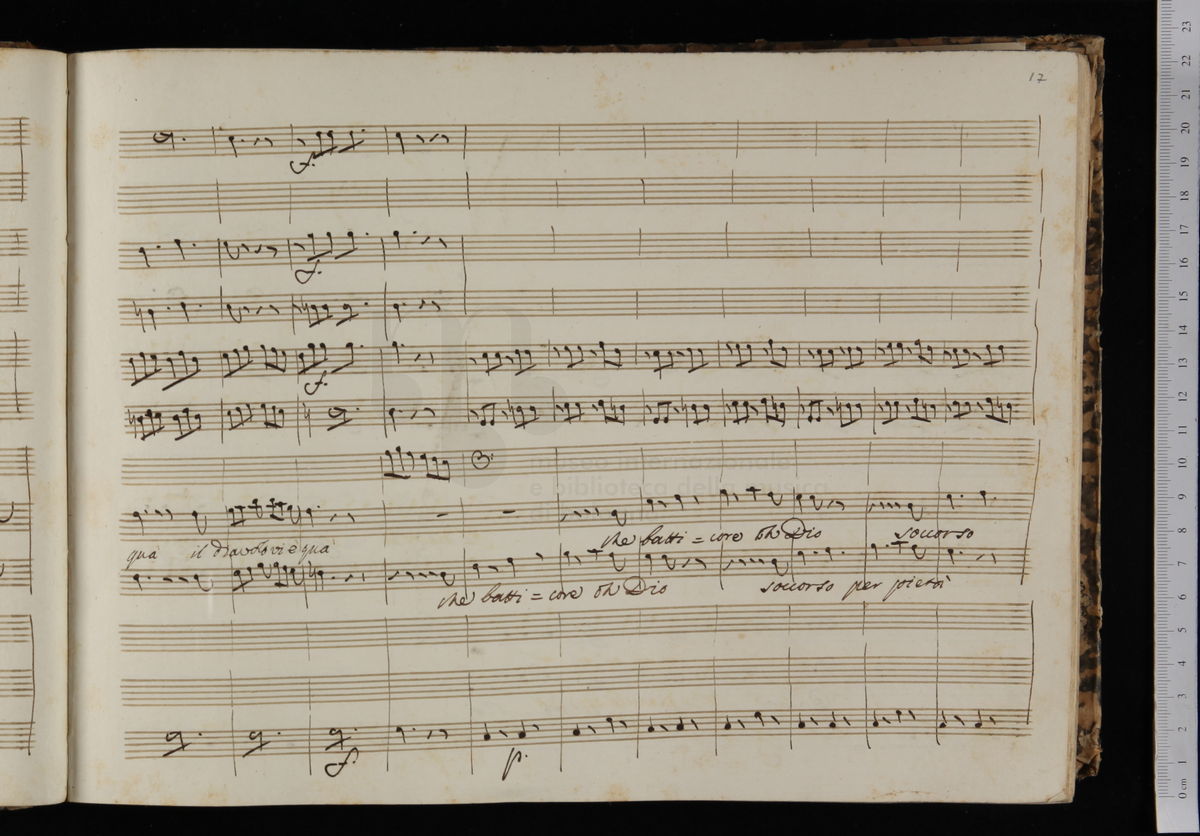 17
f.
f.
f.
museo internazionale
e biblioteca della musica
che batti = core oh Dio soccorso
qua il diavolo vi è qua
che batti = core oh Dio soccorso per pietà
f
p.
0 cm 1 2 3 4 5 6 7 8 9 10 11 12 13 14 15 16 17 18 19 20 21 22 23